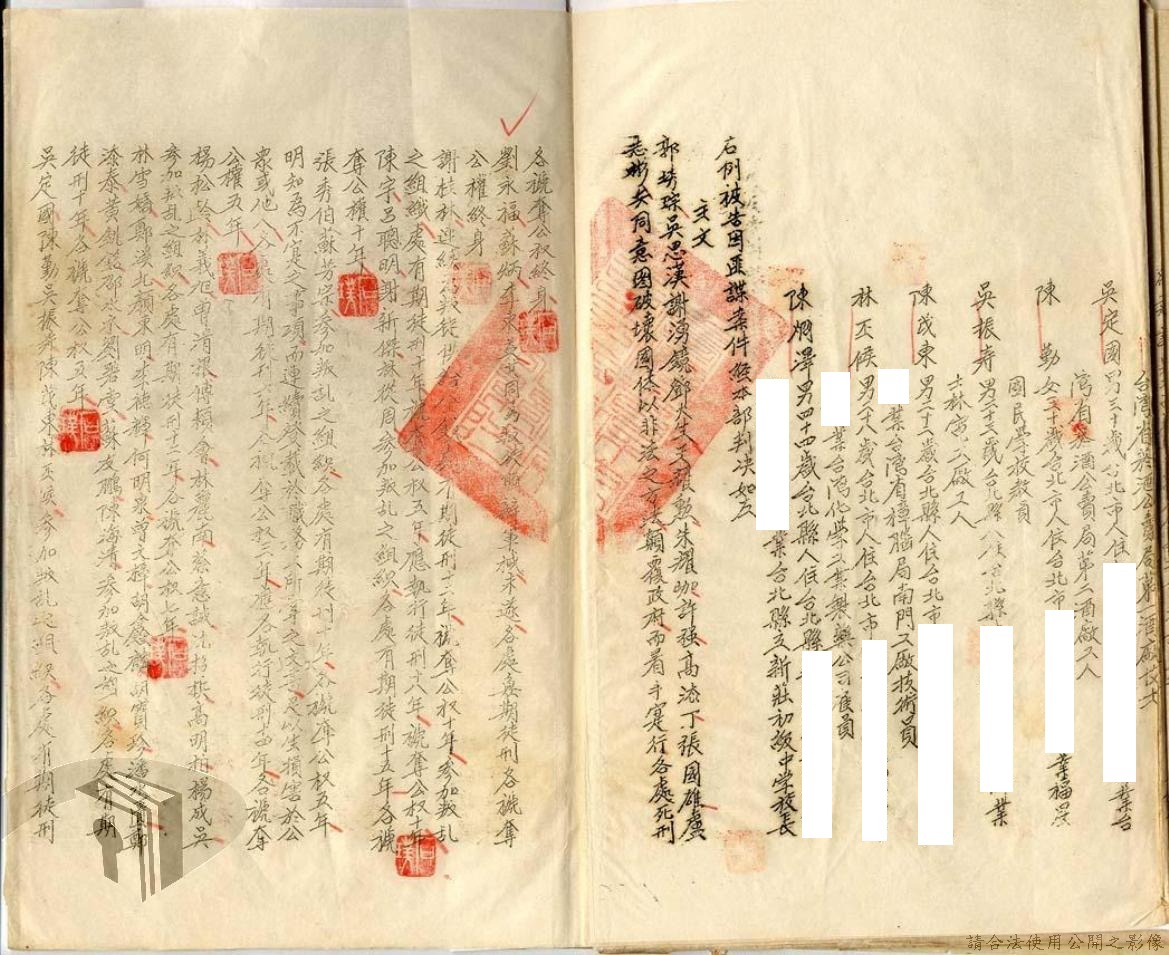 台灣省菸酒公賣局第一酒廠技士
吳定國 男三十歲台北市人住 業台
灣省菸酒公賣局第二酒廠工人
陳 勤 女三十歲台北市人住台北市 業福星
國民學校教員
吳振壽 男二十三歲台北縣人住台北縣 業
士林電工廠工人
陳茂東 男二十六歲台北縣人住台北市
業台灣省樟腦局南門工廠技術員
林丕候 男二十八歲台北市人住台北市
業台灣化學工業製藥公司雇員
陳炯澤 男四十四歲台北縣人住台北縣
業台北縣立新莊初級中學校長
右列被告因匪諜案件經本部判決如左
主文
郭琇琮吳思漢謝湧鏡鄧火生王耀勳朱耀珈許強高添丁張國雄盧
志彬共同意圖破壞國体以非法之方法顛覆政府而着手實行各處死刑
各褫奪公权終身
劉永福蘇炳李東益共同為叛徒 未遂各處無期徒刑各褫奪
公權終身
謝桂林連續為叛徒 有期徒刑十二年褫奪公权十年參加叛乱
之組織處有期徒刑十年褫奪公权五年應執行徒刑十八年褫奪公权十年
陳宗 呂聰明謝新傑林從周參加叛乱之組織各處有期徒刑十五年各褫
奪公權十年
張秀伯蘇芳宗參加叛乱之組織各處有期徒刑十年各褫奪公权五年
明知為不實之事項而連續登載於職務上所掌之文書足以生損害於公
眾或他人各處有期徒刑六年各褫奪公权三年應各執行徒刑十四年各褫奪
公權五年
楊松齡 義旭曹消 傅賴會林麗南蔡意誠沈招撰高明柏楊成吳
參加叛乱之組織各處有期徒刑十二年各褫奪公权七年
林雪嬌鄭漢北顏東明李德輝何明泉曾文擇胡鑫麟胡寶珍潘水 鄭
添泰黃 邵 劉碧堂蘇友鵬陳海清參加叛乱之組織各處有期
徒刑十年各褫奪公权五年
吳定國陳勤吳振壽陳茂東林丕候參加叛乱之組織各處有期徒刑
請合法使用公開之影像